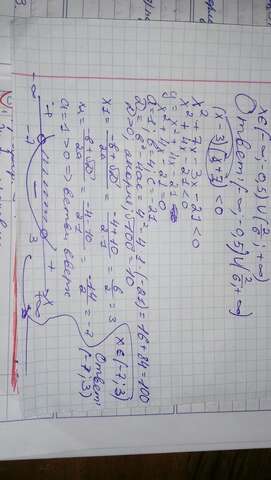 x∈(-∞; -0,5)∪(2/6; +∞)
Ответ: (-∞; -0,5)∪(2/6; +∞)
(x-3)(x+7)<0
x²+7x-3x-21<0
x²+4x-21<0
y=x²+4x-21
x²+4x-21=0
a=1; b=4; c=-21
D=b²-4ac=4²-4·1·(-21)=16+84=100
D>0, √100=10
x1=-b+√D/2a=-4+10/2·1=6/2=3
x2=-b-√D/2a=-4-10/2·1=-14/2=-7
a=1>0 => ветви вверх
x∈(-7;3)
Ответ:
(-7;3)
-∞ + -7 - 3 + x +∞